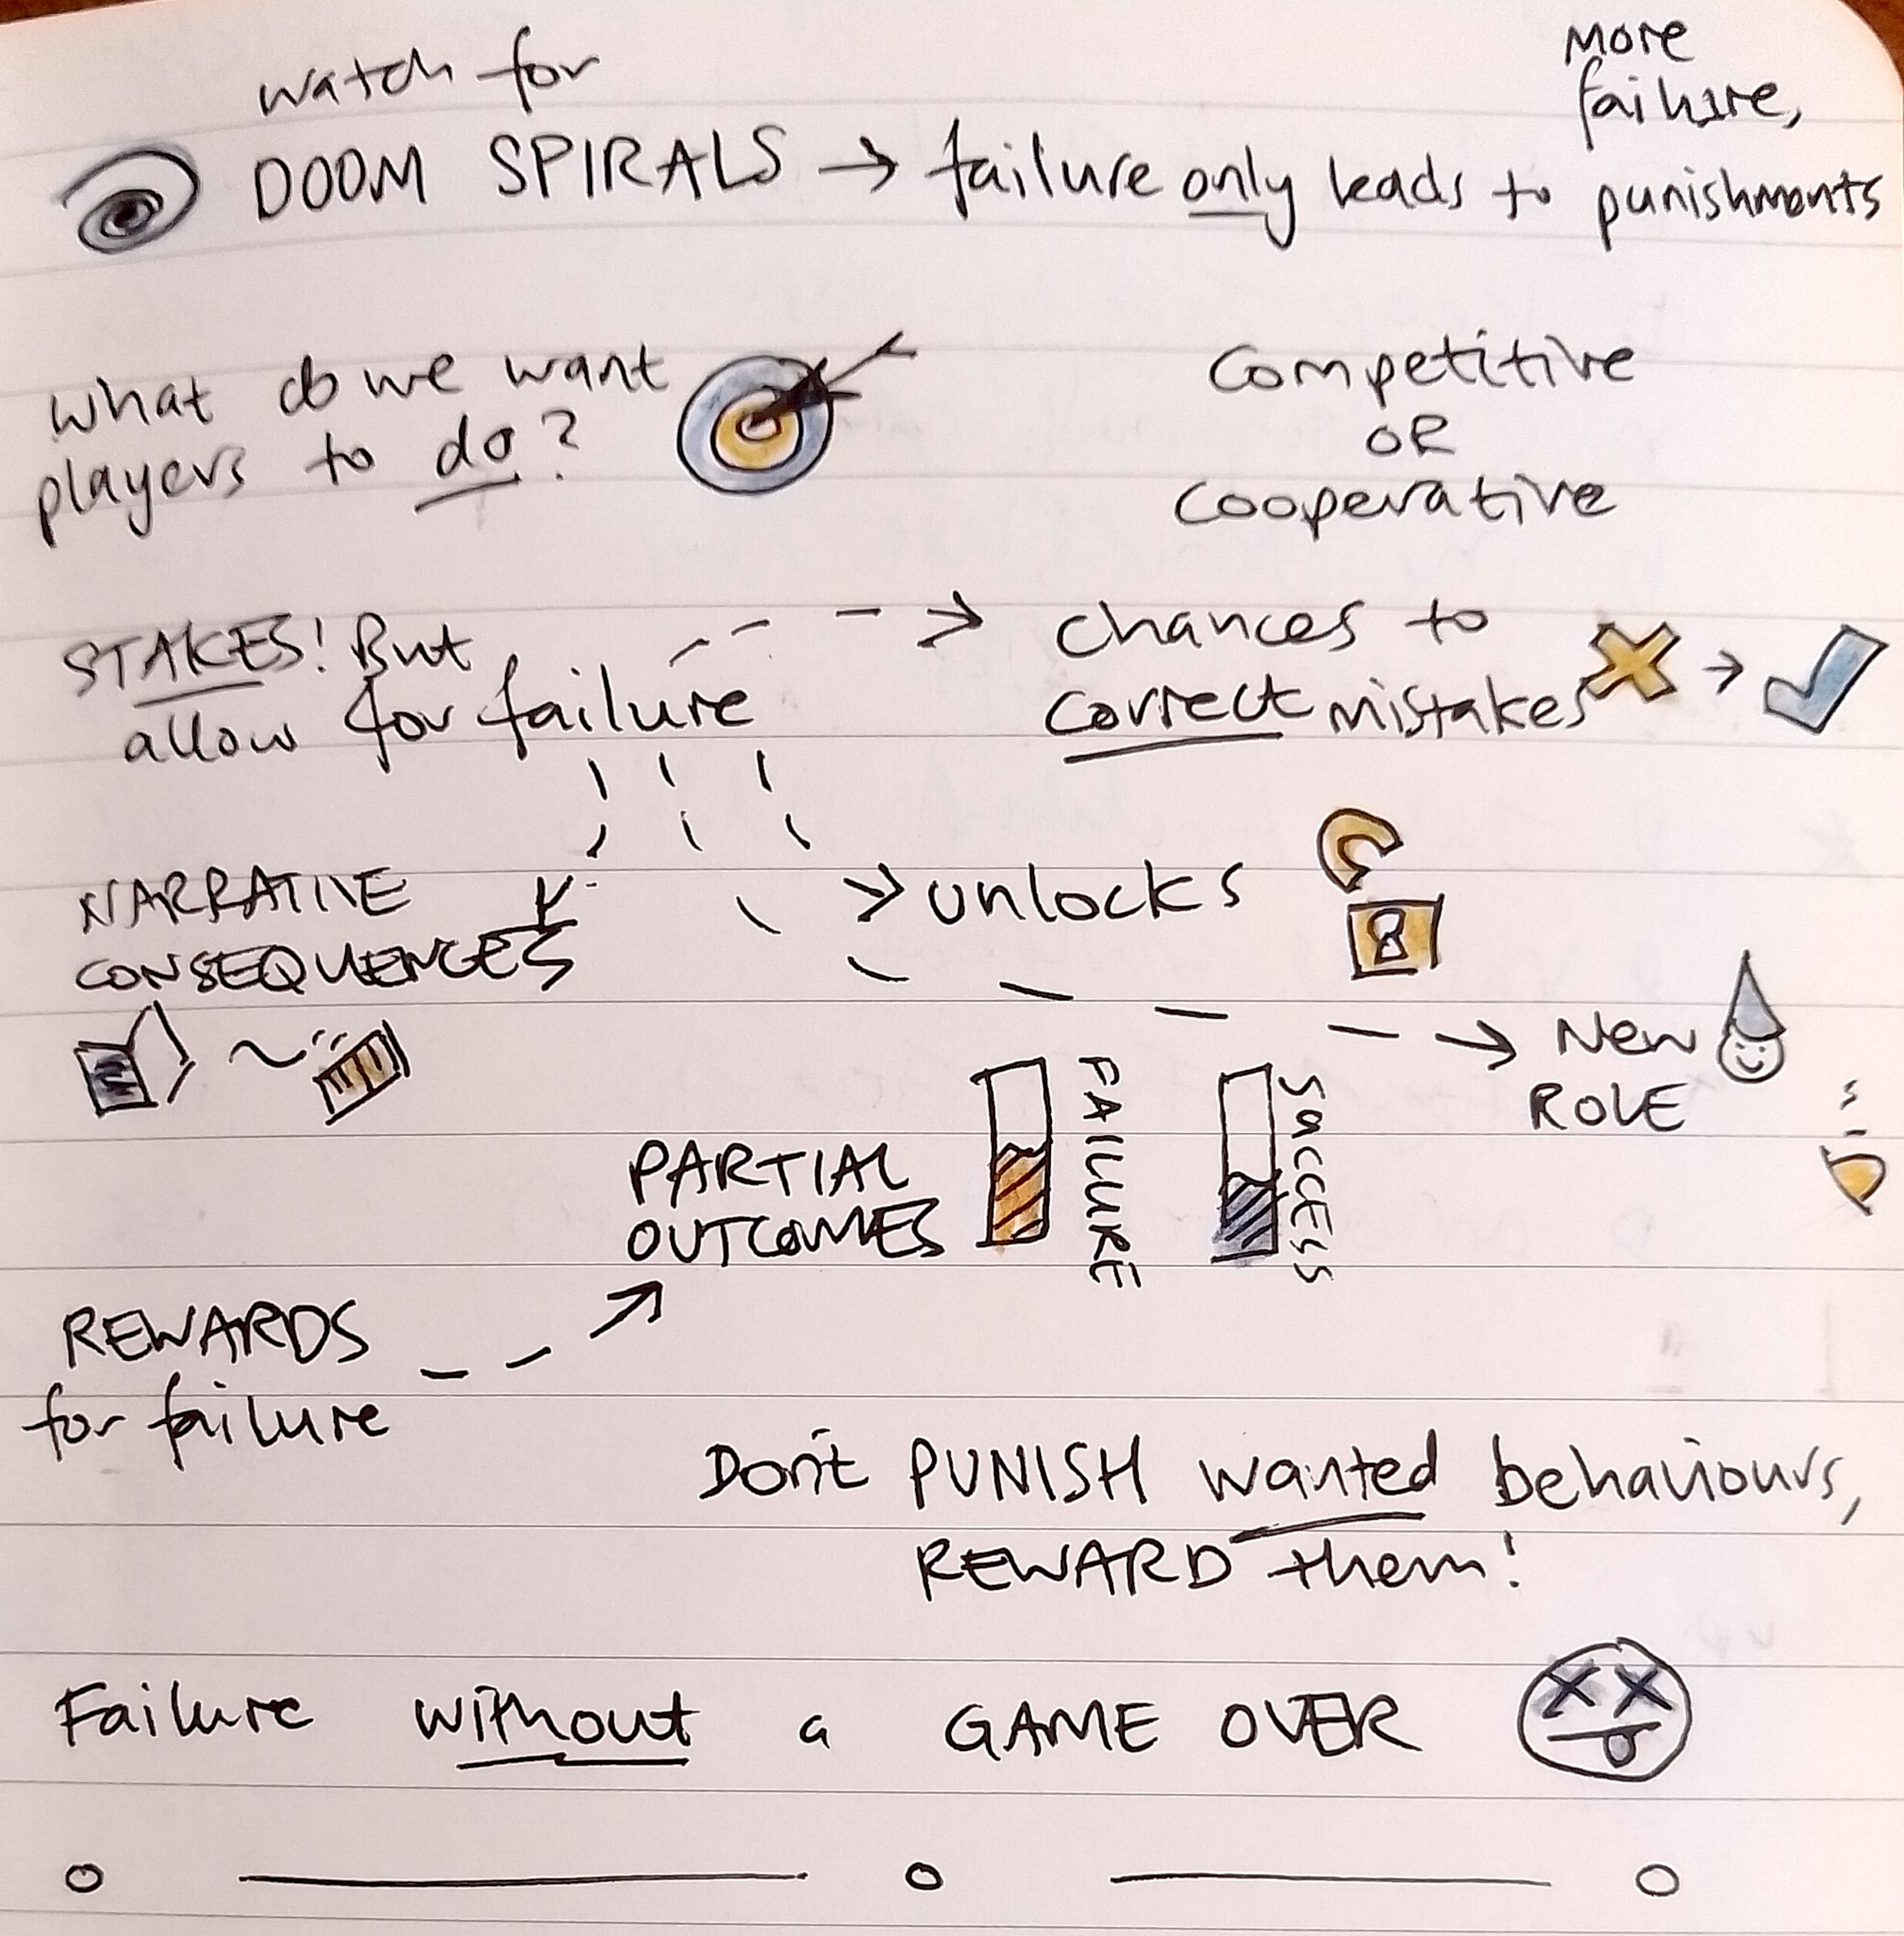 watch for
DOOM SPIRALS → failure only leads to more failure, punishments
What do we want
players to do?
Competitive
OR
cooperative
STAKES! But
allow for failure
chances to
correct mistakes
NARRATIVE
CONSEQUENCES
unlocks
New
ROLE
PARTIAL
OUTCOMES
FAILURE
SUCCESS
REWARDS
for failure
Don't PUNISH wanted behaviours,
REWARD them!
Failure without a GAME OVER